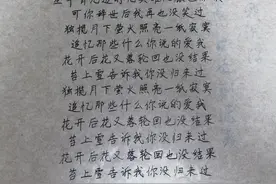 可你辞世后我再也没笑过
独揽月下萤火照亮一纸寂寞
追忆那些什么你说的爱我
花开后花又落轮回也没结果
苔上雪告诉我你没归来过
独揽月下萤火照亮一纸寂寞
追忆那些什么你说的爱我
花开后花又落轮回也没结果
苔上雪告诉我你没归来过
花开后花又落轮回也没结果
苔上雪告诉我你没归来过